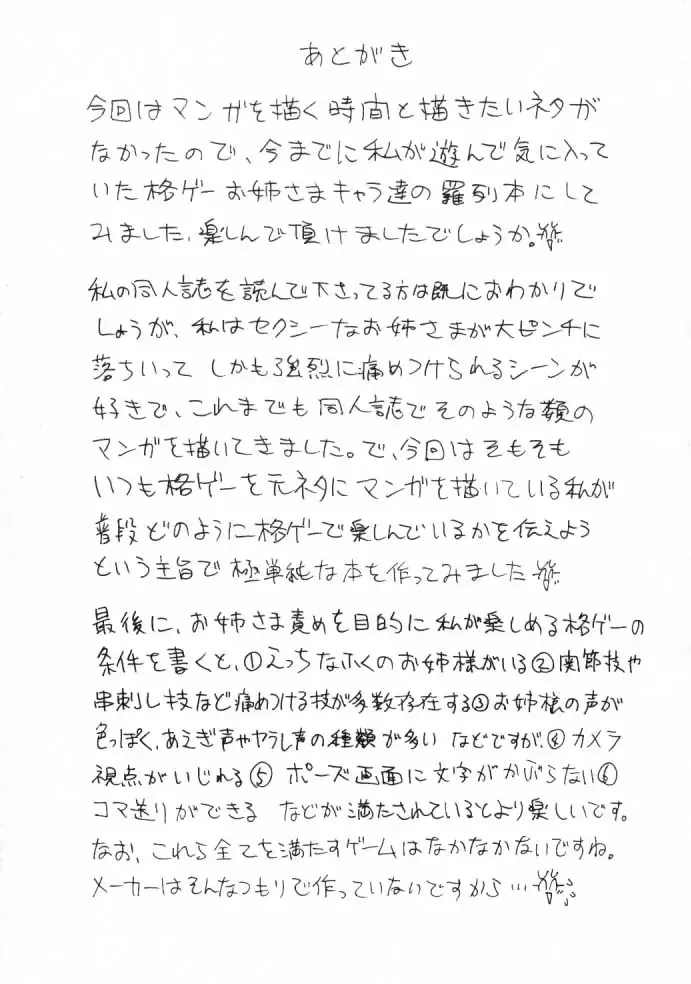 あとがき
今回はマンガを描く時間と描きたいネタが
なかったので、今までに私が遊んで気に入って
いた格ゲーお姉さまキャラ達の羅列本にして
みました。楽しんで頂けましたでしょうか。
私の同人誌を読んで下さってる方は既におわかりで
しょうが、私はセクシーなお姉さまが大ピンチに
落ちいって しかも強烈に痛めつけられるシーンが
好きで、これまでも同人誌でそのような類の
マンガを描いてきました。で、今回はそもそも
いつも格ゲーを元ネタにマンガを描いている私が
普段どのように格ゲーで楽しんでいるかを伝えよう
という主旨で極単純な本を作ってみました
最後に、お姉さま責めを目的に私が楽しめる格ゲーの
条件を書くと、①えっちなふくのお姉様がいる②関節技や
串刺し技など痛めつける技が多数存在する③お姉様の声が
色っぽく、あえぎ声ややらし声の種類が多い などですが、④カメラ
視点がいじれる⑤ ポーズ画面に文字がかぶらない⑥
コマ送りができる などが満たされているとより楽しいです。
なお、これら全てを満たすゲームはなかなかないですね。
メーカーはそんなつもりで作っていないですから…